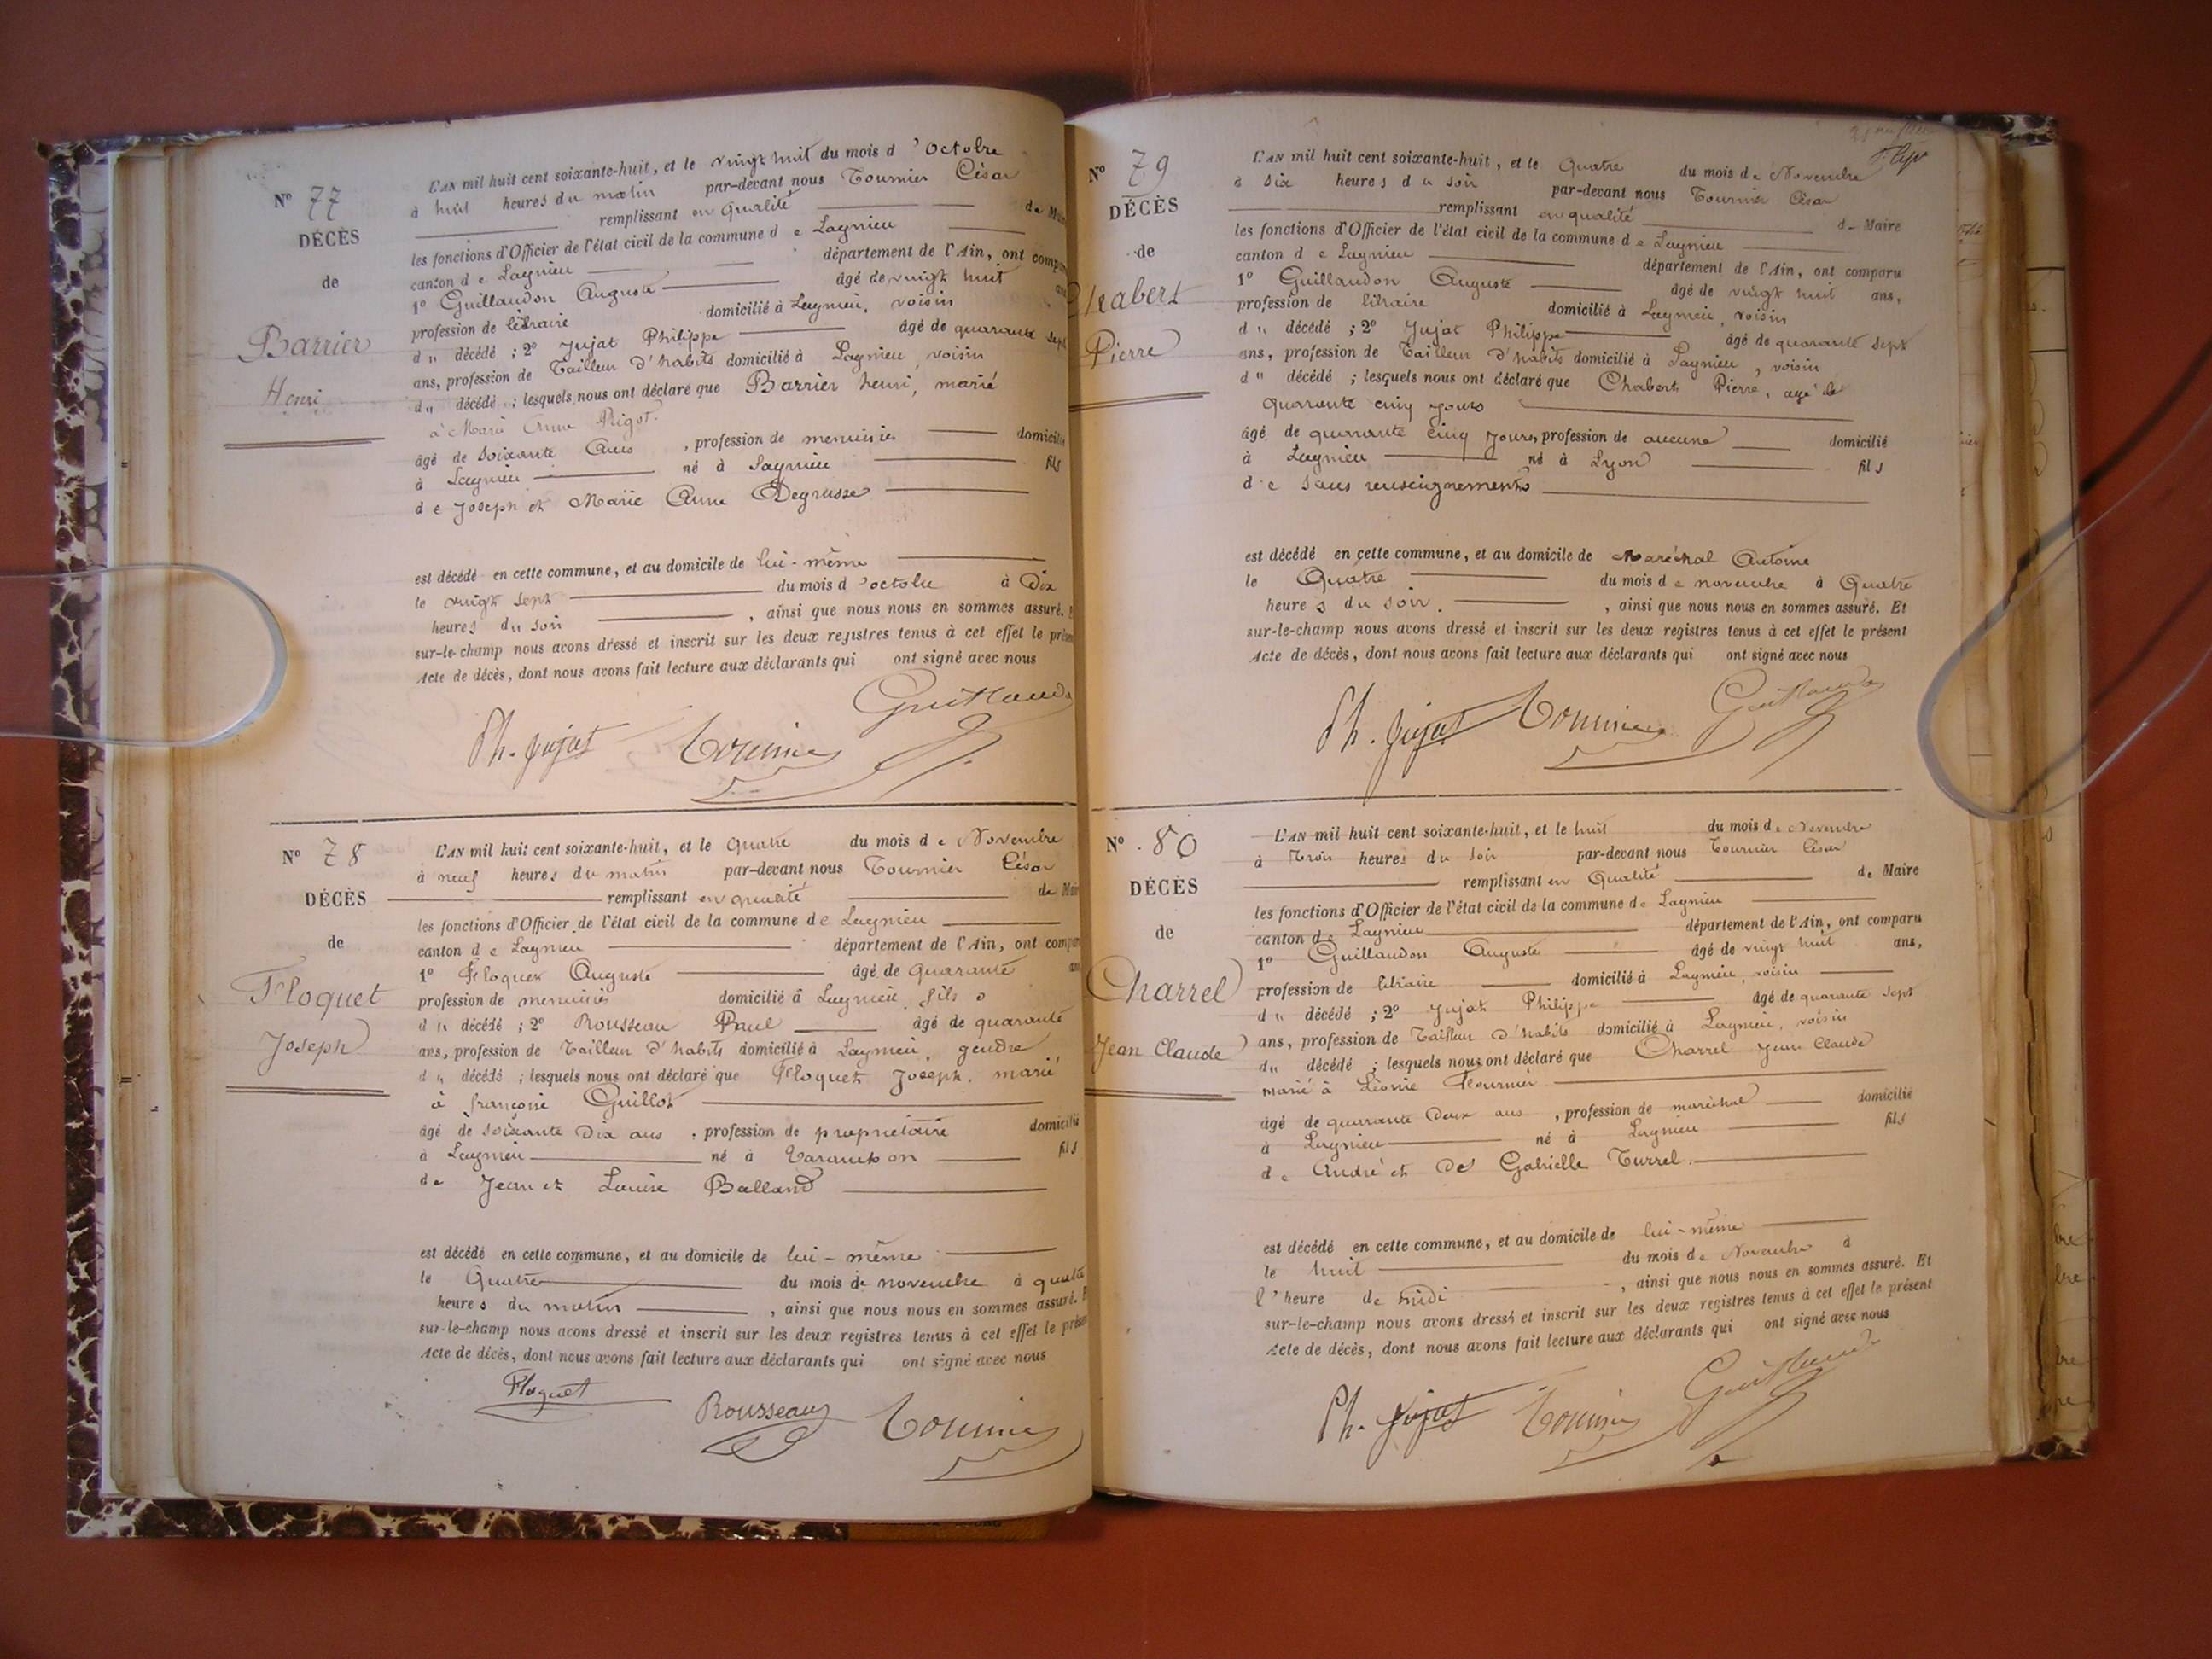 N° 77
DÉCÈS
de
Barrier
Henri
L'AN mil huit cent soixante-huit, et le vingt huit du mois d'Octobre
à huit heures du matin par-devant nous Tournier César
remplissant en qualité de Mai
les fonctions d'Officier de l'état civil de la commune de Lagnieu
canton de Lagnieu département de l'Ain, ont compa
1° Guillaudon Auguste âgé de vingt huit ans
profession de libraire domicilié à Lagnieu, voisin
du décédé ; 2° Jujat Philippe âgé de quarante sept
ans, profession de Tailleur d'habits domicilié à Lagnieu, voisin
du décédé ; lesquels nous ont déclaré que Barrier henri, marié
à Marie Anne Rigot
âgé de soixante Ans, profession de menuisier domicilié
à Lagnieu né à Lagnieu fils
de Joseph et Marie Anne Degrusse
est décédé en cette commune, et au domicile de lui-même
le vingt sept du mois d'octobre à Dix
heures du soir, ainsi que nous nous en sommes assuré.
sur-le-champ nous avons dressé et inscrit sur les deux registres tenus à cet effet le prése
Acte de décès, dont nous avons fait lecture aux déclarants qui ont signé avec nous
Guillaudo
Ph. Jujat Tournier
N° 78
DÉCÈS
de
Floquet
Joseph
L'AN mil huit cent soixante-huit, et le quatre du mois de Novembre
à neuf heures du matin par-devant nous Tournier César
remplissant en qualité de Mair
les fonctions d'Officier de l'état civil de la commune de Lagnieu
canton de Lagnieu département de l'Ain, ont compa
1° Floquet Auguste âgé de quarante an
profession de menuisier domicilié à Lagnieu fils
du décédé ; 2° Rousseau Paul âgé de quarante
ans, profession de Tailleur d'habits domicilié à Lagnieu, gendre
du décédé ; lesquels nous ont déclaré que Floquet Joseph, marié
à françoise Guillot
âgé de soixante Dix ans, profession de propriétaire domicilié
à Lagnieu né à fils
de Jean et Louise Balland
est décédé en cette commune, et au domicile de lui-même
le Quatre du mois de novembre à quatre
heures du matin, ainsi que nous nous en sommes assuré. E
sur-le-champ nous avons dressé et inscrit sur les deux registres tenus à cet effet le prése
Acte de décès, dont nous avons fait lecture aux déclarants qui ont signé avec nous
Floquet Rousseau Tournier
N° 79
DÉCÈS
de
Chabert
Pierre
L'AN mil huit cent soixante-huit, et le Quatre du mois de Novembre
à six heures du soir par-devant nous Tournier César
remplissant en qualité de Maire
les fonctions d'Officier de l'état civil de la commune de Lagnieu
canton de Lagnieu département de l'Ain, ont comparu
1° Guillaudon Auguste âgé de vingt huit ans,
profession de libraire domicilié à Lagnieu, voisin
du décédé ; 2° Jujat Philippe âgé de quarante sept
ans, profession de Tailleur d'habits domicilié à Lagnieu, voisin
du décédé ; lesquels nous ont déclaré que Chabert Pierre, agé de
quarante cinq jours
âgé de quarante cinq jours, profession de aucune domicilié
à Lagnieu né à Lyon fils
de sans renseignements
est décédé en cette commune, et au domicile de Maréchal Antoine
le Quatre du mois de novembre à Quatre
heures du soir, ainsi que nous nous en sommes assuré. Et
sur-le-champ nous avons dressé et inscrit sur les deux registres tenus à cet effet le présent
Acte de décès, dont nous avons fait lecture aux déclarants qui ont signé avec nous
Ph. Jujat Tournier Guillaudo
N° 80
DÉCÈS
de
Charrel
Jean Claude
L'AN mil huit cent soixante-huit, et le huit du mois de Novembre
à Trois heures du soir par-devant nous Tournier César
remplissant en Qualité de Maire
les fonctions d'Officier de l'état civil de la commune de Lagnieu
canton de Lagnieu département de l'Ain, ont comparu
1° Guillaudon Auguste âgé de vingt huit ans,
profession de libraire domicilié à Lagnieu, voisin
du décédé ; 2° Jujat Philippe âgé de quarante sept
ans, profession de Tailleur d'habits domicilié à Lagnieu, voisin
du décédé ; lesquels nous ont déclaré que Charrel Jean Claude
marié à Léonie Fournier
âgé de quarante Deux ans, profession de maréchal domicilié
à Lagnieu né à Lagnieu fils
de André et De Gabrielle Turrel
est décédé en cette commune, et au domicile de lui-même
le huit du mois de Novembre à
l'heure de midi, ainsi que nous nous en sommes assuré. Et
sur-le-champ nous avons dressé et inscrit sur les deux registres tenus à cet effet le présent
Acte de décès, dont nous avons fait lecture aux déclarants qui ont signé avec nous
Ph. Jujat Tournier Guillaud